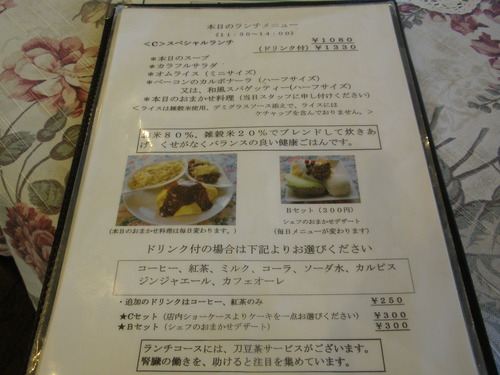 本日のランチメニュー
(11:30～14:00)
<C>スペシャルランチ ￥1080
(ドリンク付) ￥1330
＊本日のスープ
＊カラフルサラダ
＊オムライス(ミニサイズ)
＊ベーコンのカルボナーラ(ハーフサイズ)
又は、和風スパゲッティー(ハーフサイズ)
＊本日のおまかせ料理(当日スタッフに申し付けください)
<ライスは雑穀米使用、デミグラスソース添えで、ライスには
ケチャップを含んでおりません。>
米80%、雑穀米20%でブレンドして炊きあ
げ、くせがなくバランスの良い健康ごはんです。
(本日のおまかせ料理は毎日変わります。)
Bセット(300円)
シェフのおまかせデザート
(毎日メニューが変わります)
ドリンク付の場合は下記よりお選びください
コーヒー、紅茶、ミルク、コーラ、ソーダ水、カルピス
ジンジャエール、カフェオーレ
・追加のドリンクはコーヒー、紅茶のみ ￥250
★Cセット(店内ショーケースよりケーキを一点お選びください) ￥300
★Bセット(シェフのおまかせデザート) ￥300
ランチコースには、刀豆茶サービスがございます。
腎臓の働きを、助けると注目を集めています。